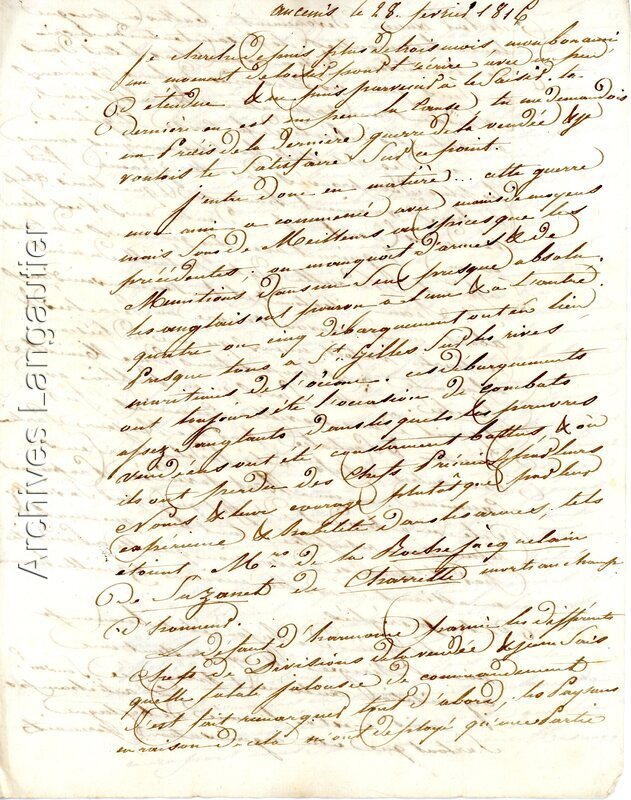 ancenis le 28. fevrier 1816
je cherche depuis plus de trois mois, mon bon ami
un moment de loisir pour t'ecrire avec un peu
d'étendue & ne puis parvenir à le saisir. la
dernière en est un peu la cause tu me demandois
un Précis de la dernière guerre de la vendée & je
voulois te Satisfaire Sur ce point.
j'entre donc en matière... cette guerre
mon ami a commencé avec moins de moyens
mais sous de Meilleurs auspices que les
précédentes; on manquoit d'armes & de
Munitions, dans un Sens presque absolu.
les anglais ont pourvu à l'une & à l'autre.
quatre ou cinq débarquements ont eu lieu
Presque tous à St. Gilles Sur les rives
maritimes de l'océan. ces débarquements
ont toujours été l'occasion de combats
assez Sanglants dans lesquels les pauvres
vendéens ont été constament battus & où
ils ont perdu des chefs Précieux par leurs
Noms & leur courage plutôt que par leur
expérience & habileté dans les armes, tels
étoient Mrs. de la Rochejacquelain
De Suzanet de Charrette morts au champ
d'honneur.
Le défaut d'harmonie parmi les différents
chefs de Divisions de la vendée & je ne sais
quelle fatale jalousie de commandement
S'est fait remarquer tout d'abord, les Paysans
en raison de cela n'ont déployé qu'une Partie
Archives Langautier